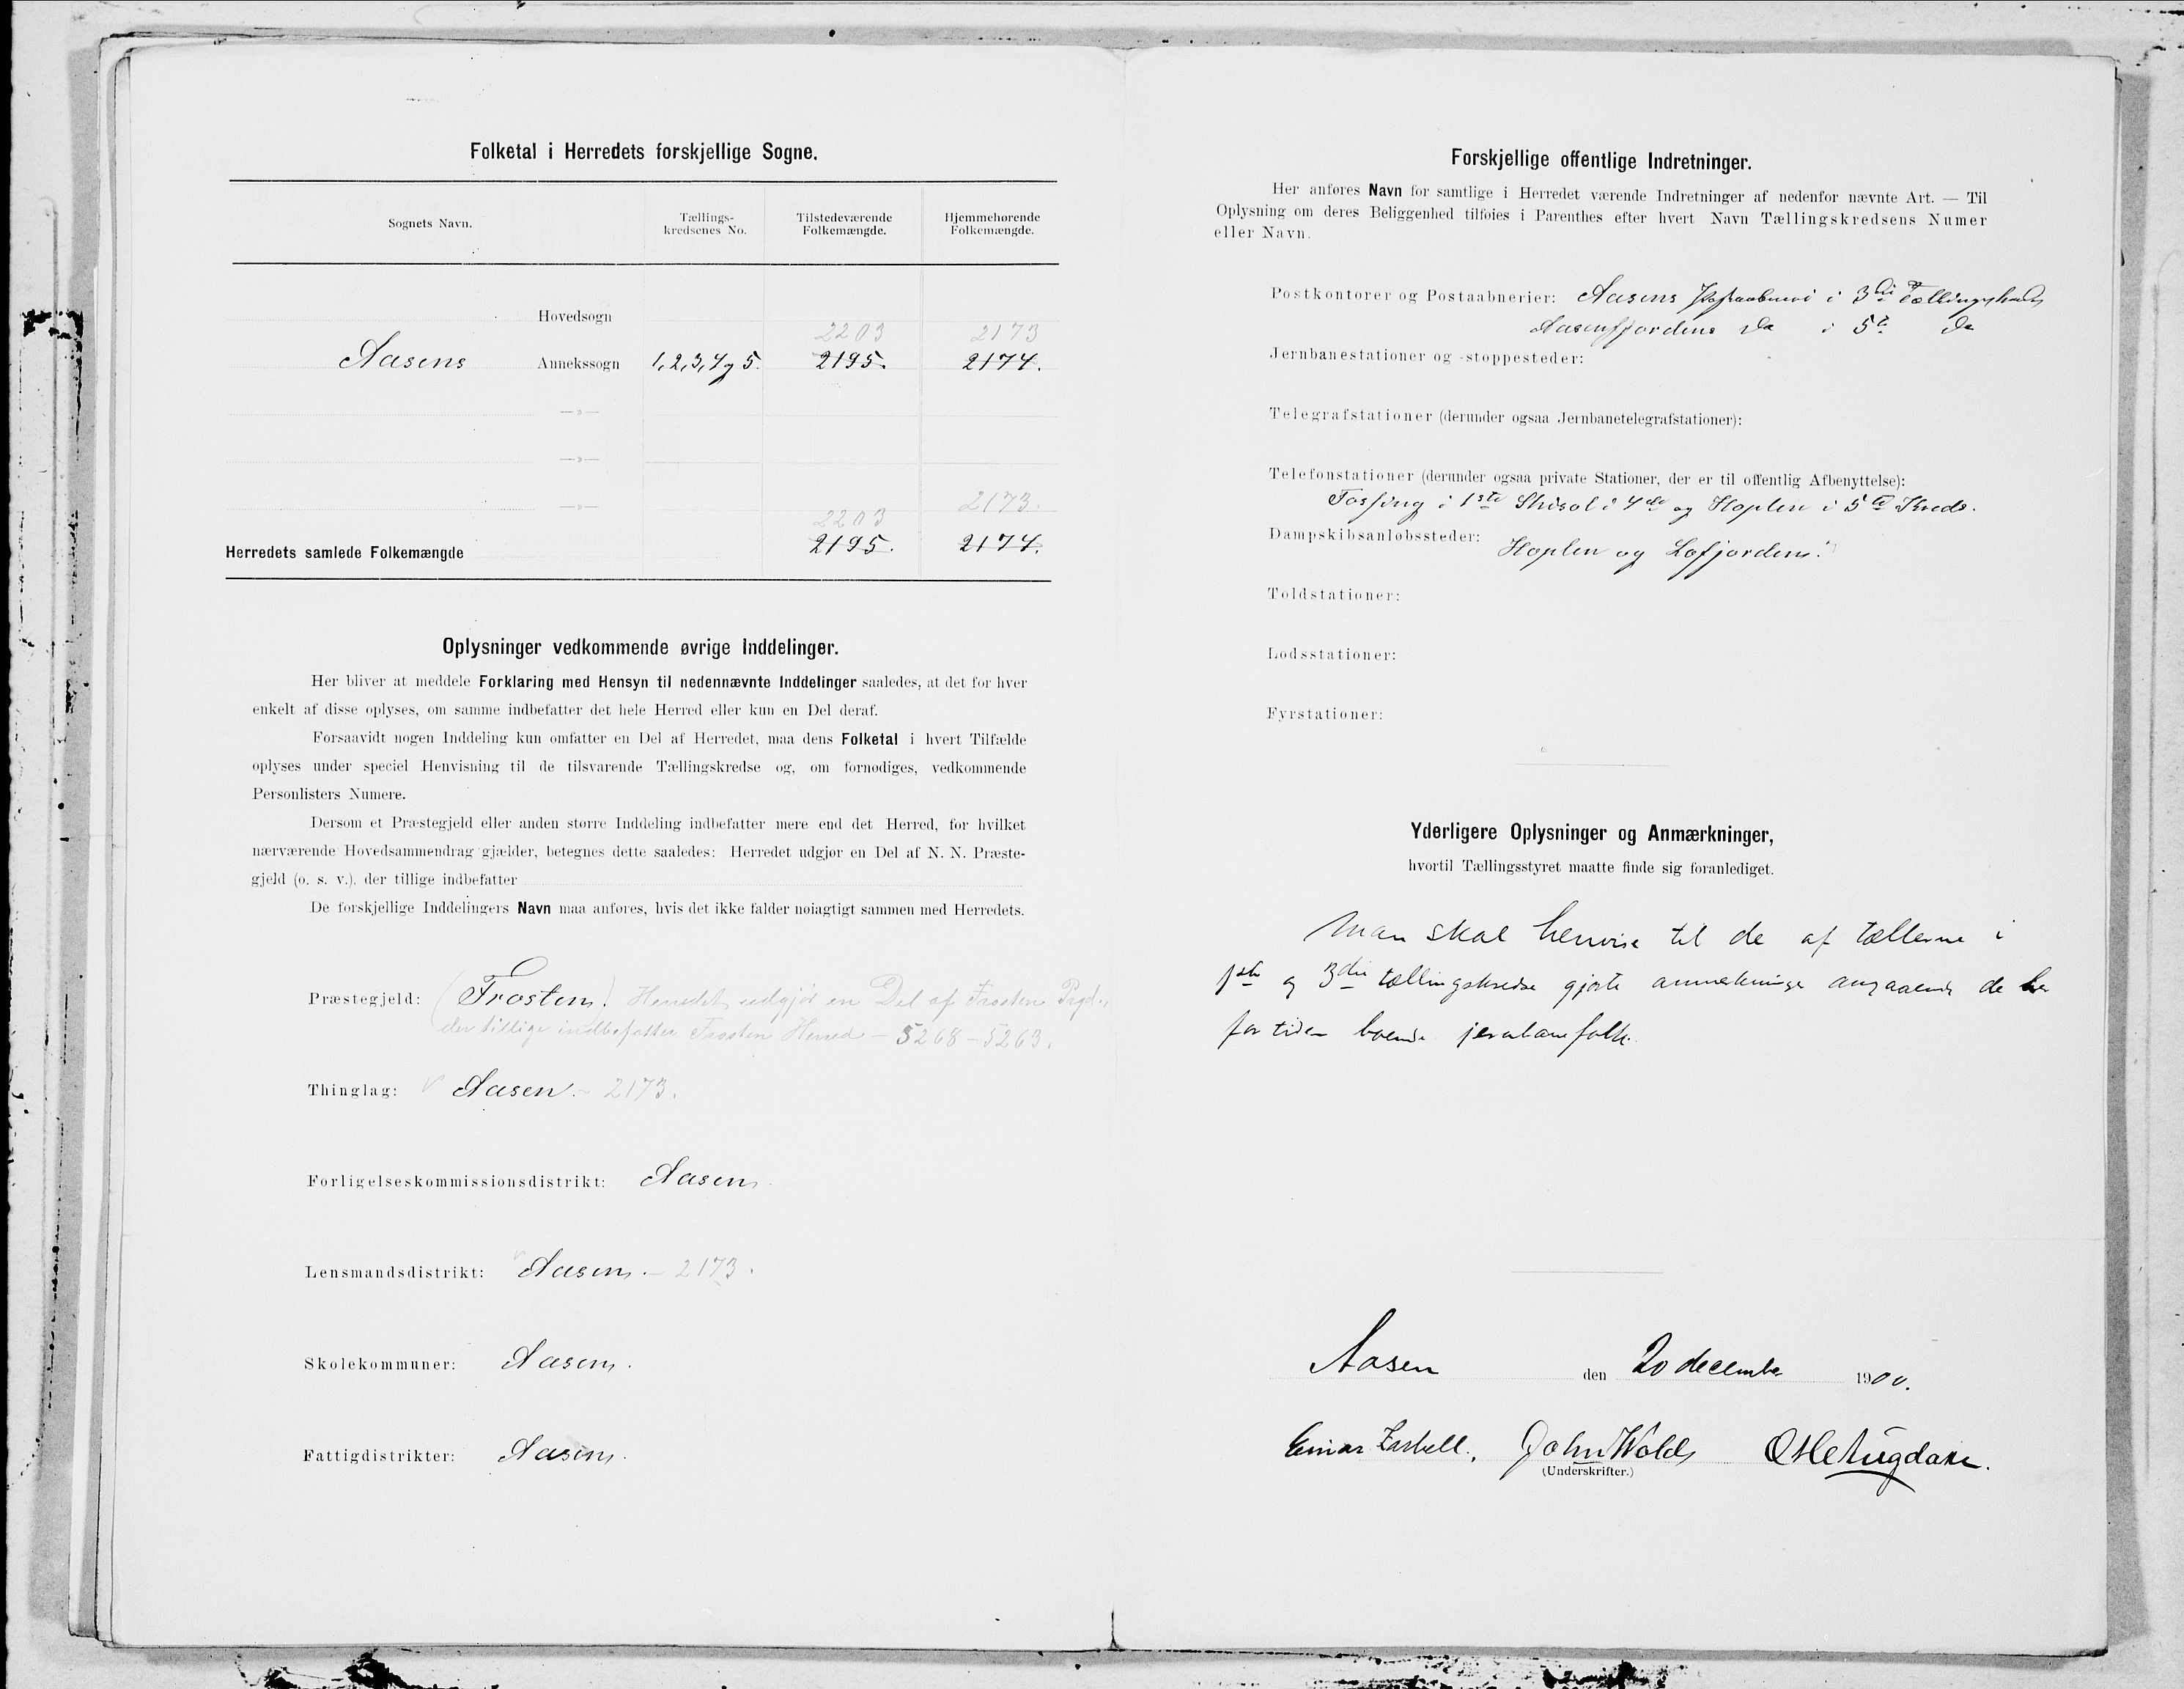 Folketal i Herredets forskjellige Sogne.
Sognets Navn.
Tællings-
kredsenes No.
Tilstedeværende
Folkemængde.
Hjemmehørende
Folkemængde.
Hovedsogn
2203 2173
Aasens Annekssogn 1,2,3,4 og 5. 2195. 2174.
—»—
—»—
—»— 2173.
2203
Herredets samlede Folkemængde 2195. 2174.
Oplysninger vedkommende øvrige Inddelinger.
Her bliver at meddele Forklaring med Hensyn til nedennævnte Inddelinger saaledes, at det for hver
enkelt af disse oplyses, om samme indbefatter det hele Herred eller kun en Del deraf.
Forsaavidt nogen Inddeling kun omfatter en Del af Herredet, maa dens Folketal i hvert Tilfælde
oplyses under speciel Henvisning til de tilsvarende Tællingskredse og, om fornødiges, vedkommende
Personlisters Numere.
Dersom et Præstegjeld eller anden større Inddeling indbefatter mere end det Herred, for hvilket
nærværende Hovedsammendrag gjælder, betegnes dette saaledes: Herredet udgjør en Del af N. N. Præste-
gjeld (o. s. v.), der tillige indbefatter
De forskjellige Inddelingers Navn maa anføres, hvis det ikke falder nøiagtigt sammen med Herredets.
Præstegjeld: (Frosten). Herredet udgjør en Del af Frosten Prgd.,
der tillige indbefatter Frosten Herred — 5268 — 5263.
Thinglag: Aasen. — 2173.
Forligelseskommissionsdistrikt: Aasen
Lensmandsdistrikt: Aasen. — 2173.
Skolekommuner: Aasen.
Fattigdistrikter: Aasen.
Forskjellige offentlige Indretninger.
Her anføres Navn for samtlige i Herredet værende Indretninger af nedenfor nævnte Art. — Til
Oplysning om deres Beliggenhed tilføies i Parenthes efter hvert Navn Tællingskredsens Numer
eller Navn.
Postkontorer og Postaabnerier: Aasens Postaabneri i 3die Tællingskreds
Aasenfjordens do i 5te do
Jernbanestationer og -stoppesteder:
Telegrafstationer (derunder ogsaa Jernbanetelegrafstationer):
Telefonstationer (derunder ogsaa private Stationer, der er til offentlig Afbenyttelse):
i 1ste i 4de og Hoplen i 5te Kreds.
Dampskibsanløbssteder: Hoplen og Lofjorden.
Toldstationer:
Lodsstationer:
Fyrstationer:
Yderligere Oplysninger og Anmærkninger,
hvortil Tællingsstyret maatte finde sig foranlediget.
Man skal henvise til de af tællerne i
1ste og 3die tællingskredse gjorte anmerkninger angaaende de her
for tiden boende jernbanefolk.
Aasen den 20 december 1900.
Einar John Wold
(Underskrifter.)